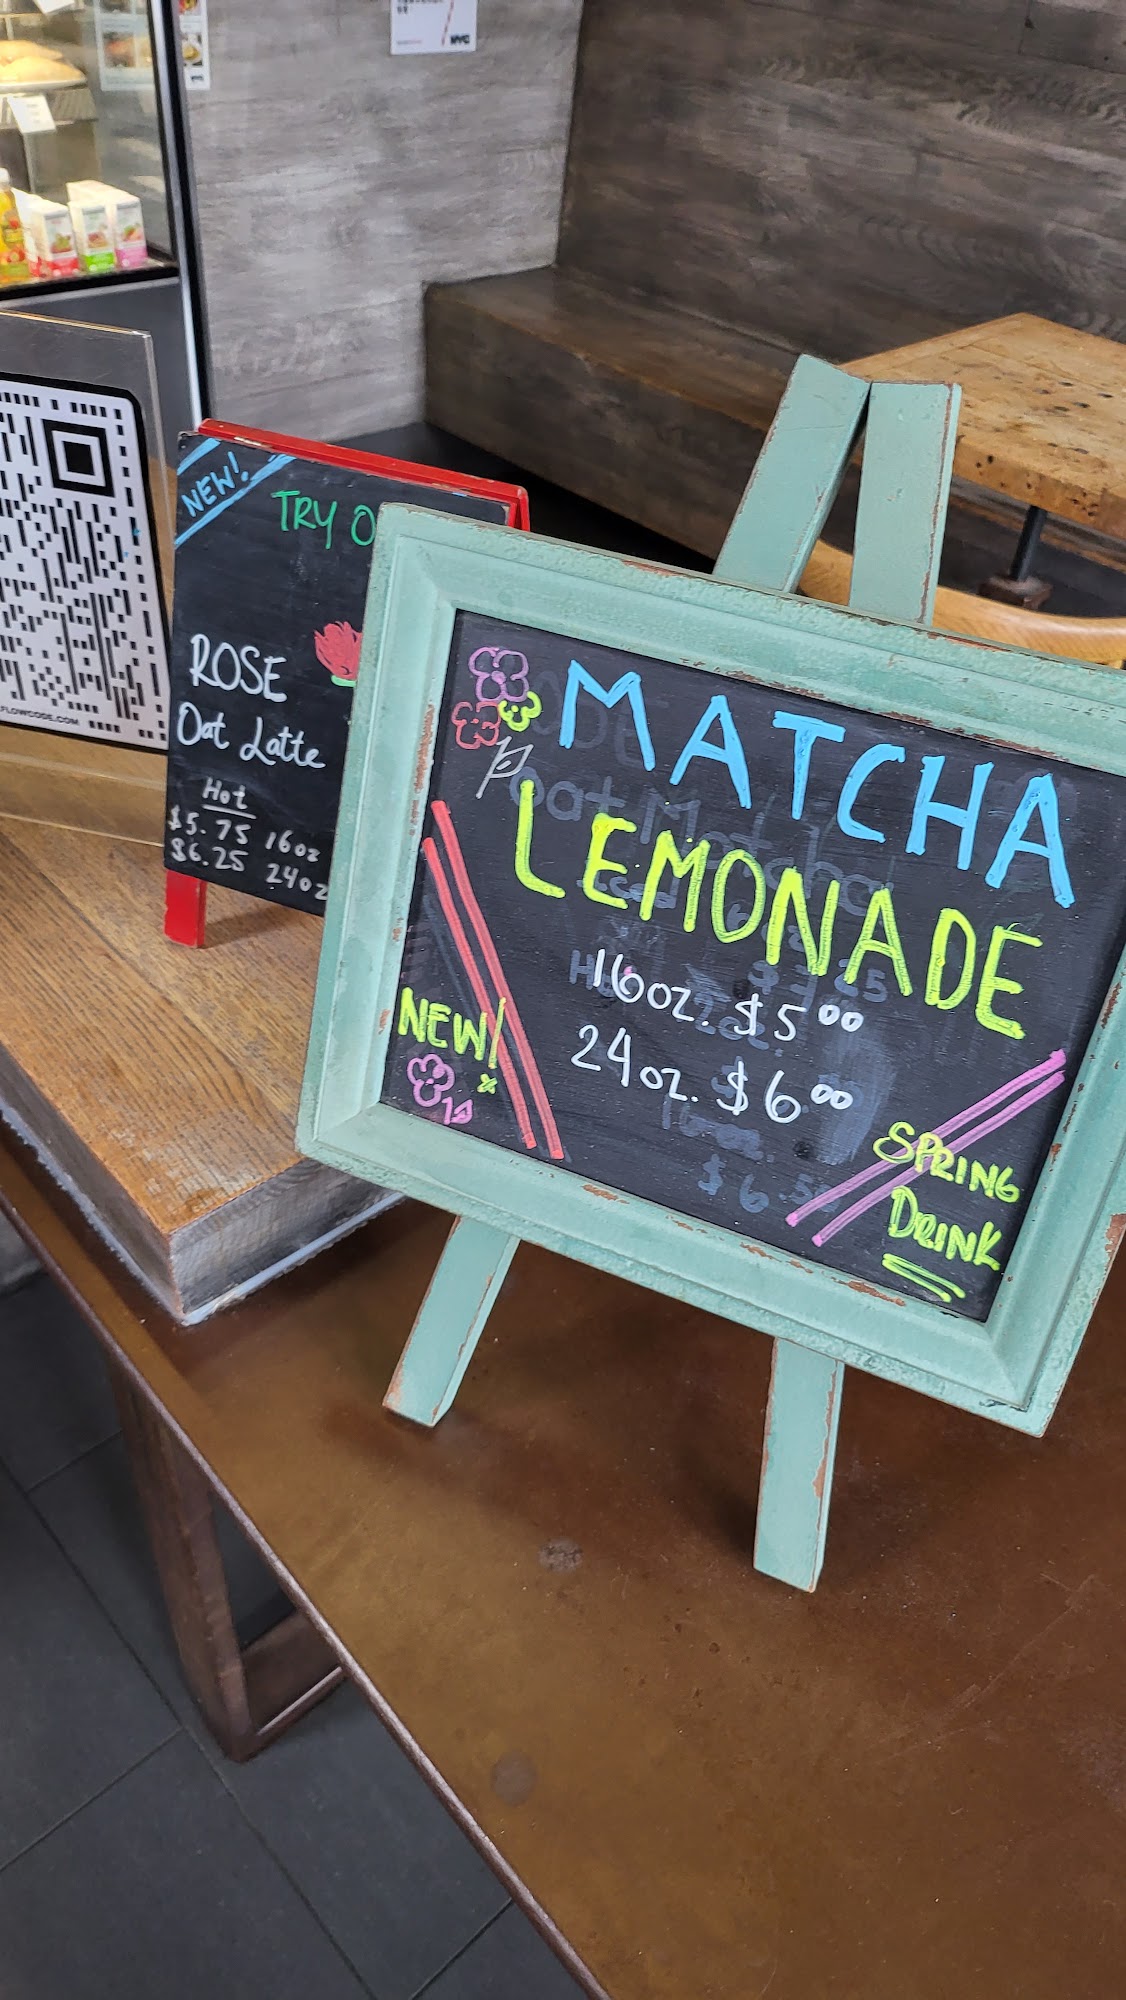 NYC
FLOWCODE.COM
NEW!
TRY O
ROSE
Oat Latte
Hot
$5.75 16oz
$6.25 24oz
MATCHA
LEMONADE
16oz. $5.00
24oz. $6.00
NEW!
SPRING
DRINK